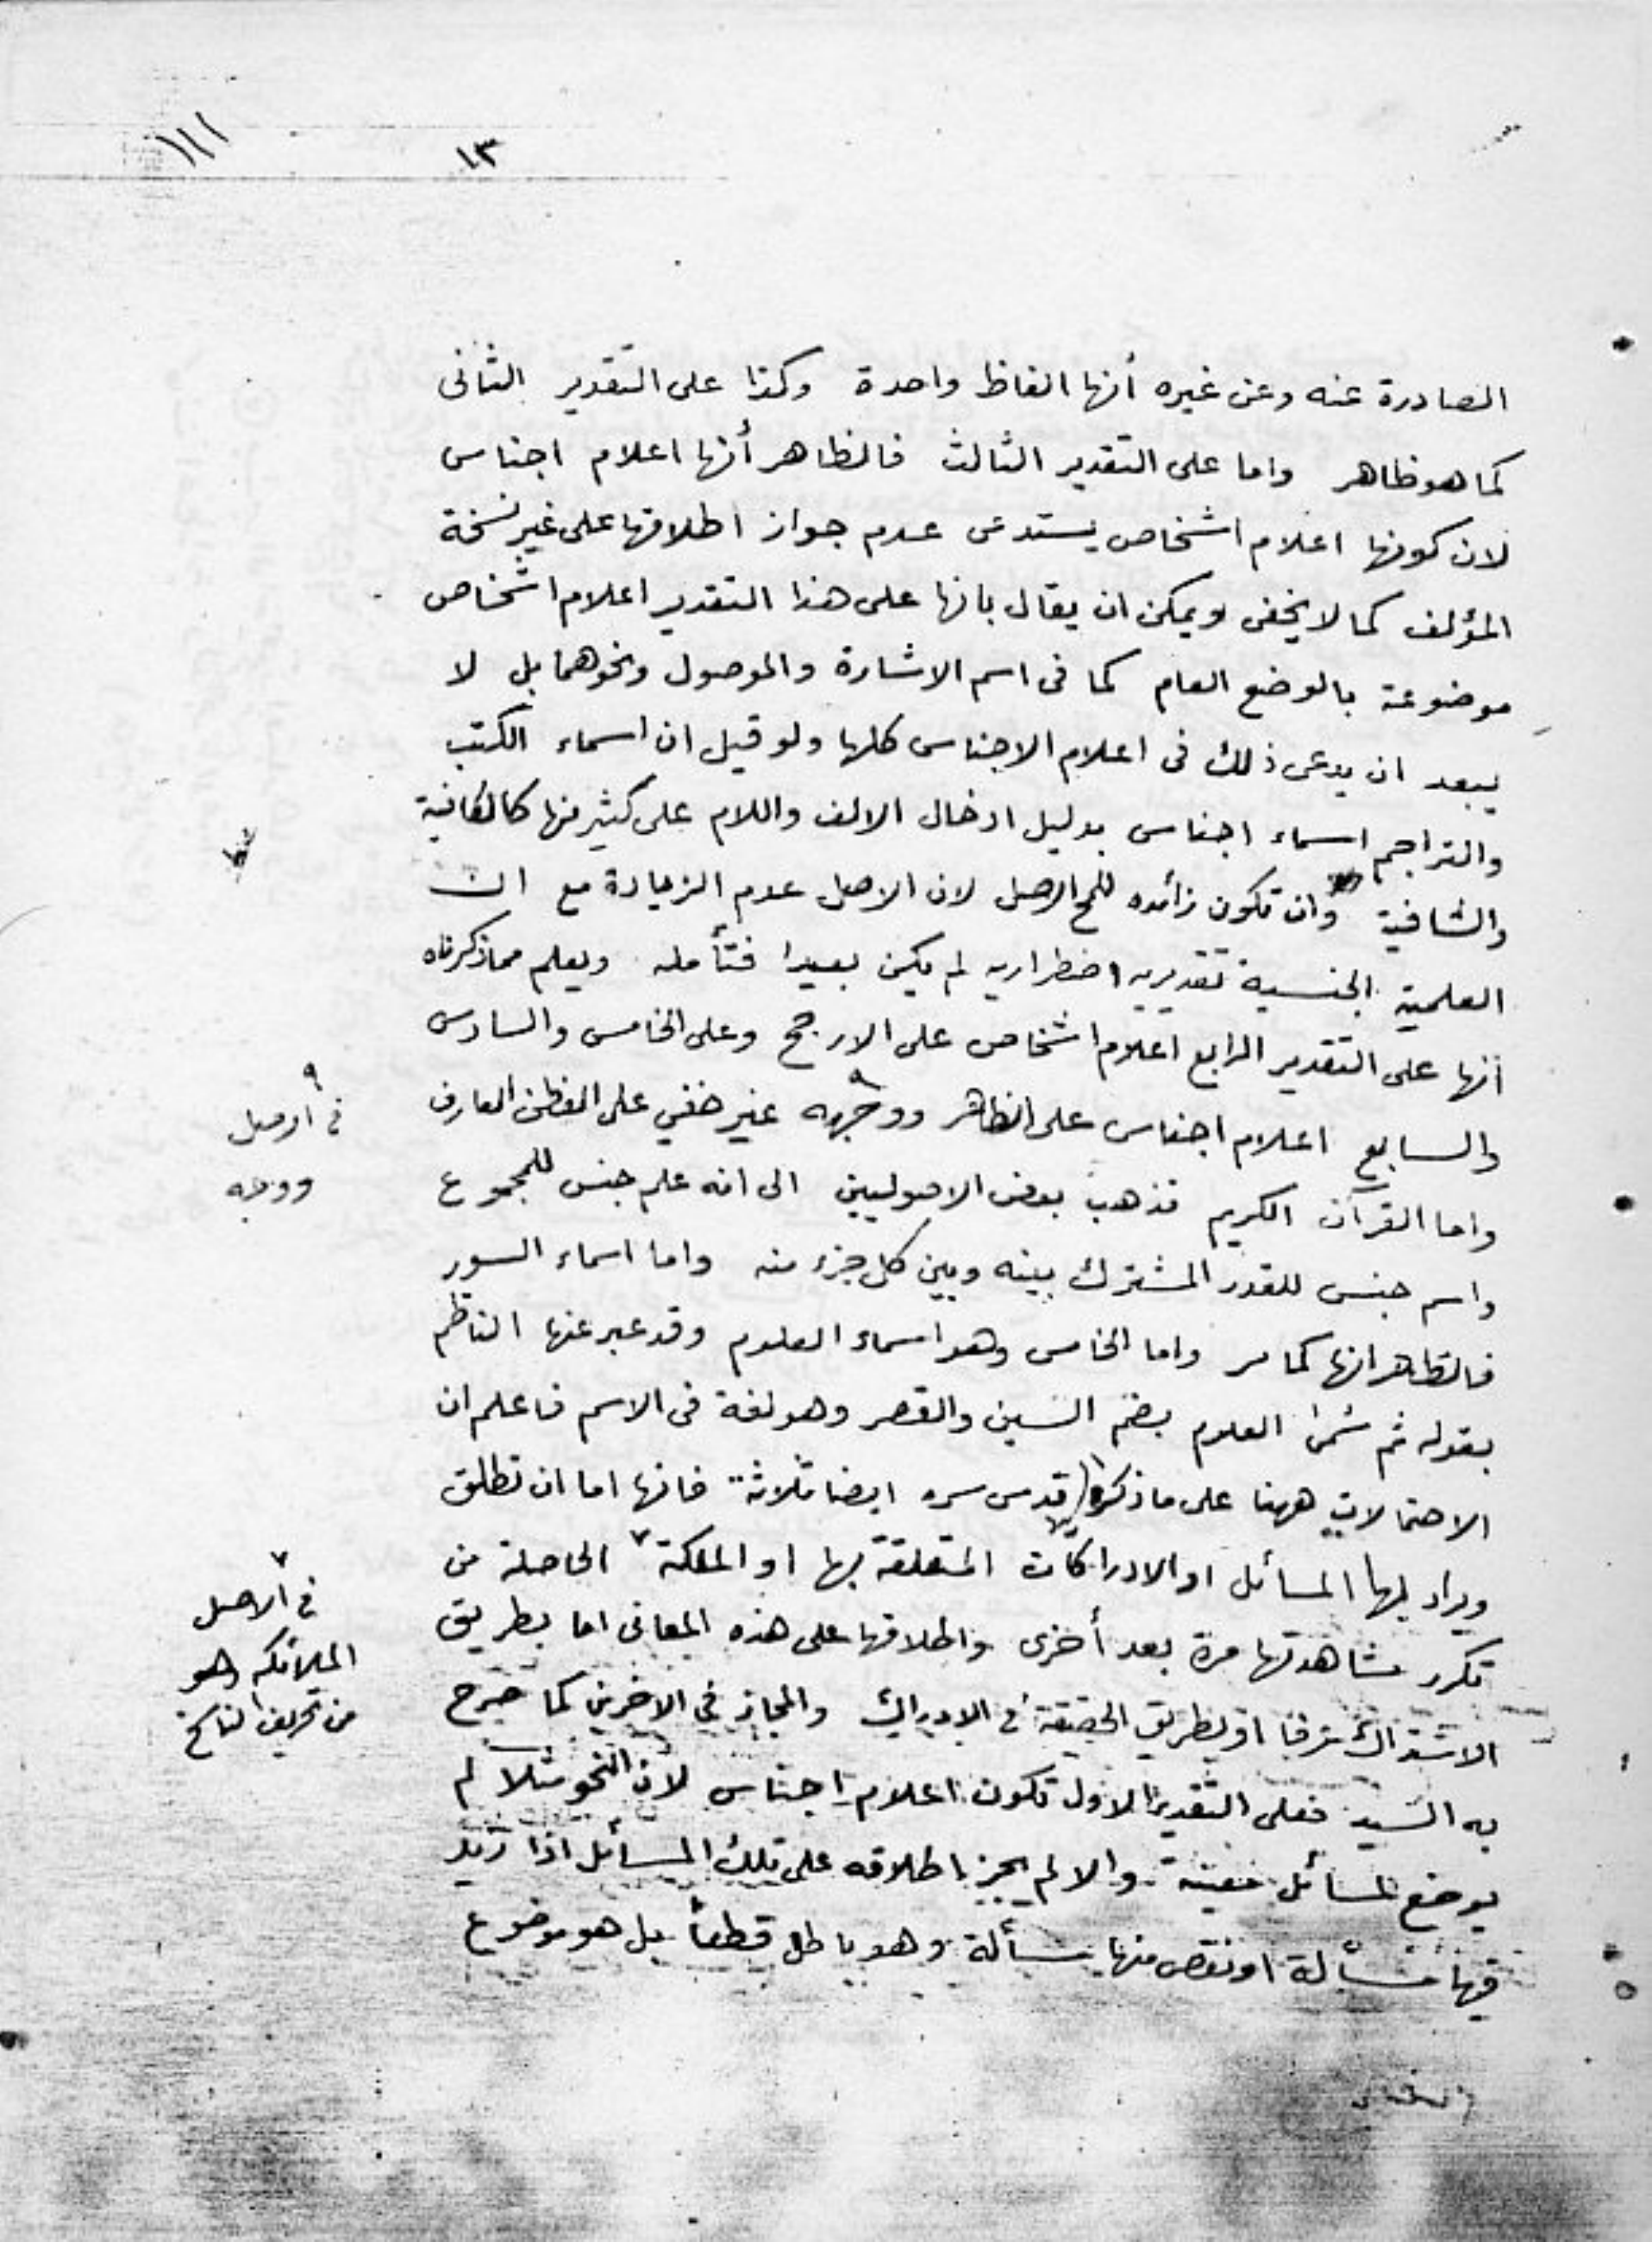 ١٣
الصادرة عنه وعن غيره أنها الفاظ واحدة وكذا على التقدير الثانى
كما هو ظاهر واما على التقدير الثالث فالظاهر أنها اعلام اجناس
لان كونها اعلام اشخاص يستدعى عدم جواز اطلاقها على غير نسخة
المؤلف كما لا يخفى ويمكن ان يقال بانها على هذا التقدير اعلام اشخاص
موضوعة بالوضع العام كما فى اسم الاشارة والموصول ونحوهما بل لا
يبعد ان يدعى ذلك فى اعلام الاجناس كلها ولو قيل ان اسماء الكتب
والتراجم اسماء اجناس بدليل ادخال الالف واللام على كثير منها كالكافية
والشافية وان تكون زائده للمح الاصل لان الاصل عدم الزيادة مع ان
العلمية الجنسية تقديريه اضطراريه لم يكن بعيدا فتأمله ويعلم مماذكرناه
أنها على التقدير الرابع اعلام اشخاص على الارجح وعلى الخامس والسادس
والسابع اعلام اجناس على الظاهر ووجهه ٩ غير خفي على الفطن العارف
٩
فى الاصل
ووجه
واما القرآن الكريم فذهب بعض الاصوليين الى انه علم جنس للمجموع
واسم جنس للقدر المشترك بينه وبين كل جزء منه واما اسماء السور
فالظاهر انها كما مر واما الخامس وهو اسماء العلوم وقد عبر عنها الناظم
بقوله ثم سُمَى العلوم بضم السين والقصر وهو لغة فى الاسم فاعلم ان
الاحتمالات ههنا على ما ذكره قدس سره ايضا ثلاثة فانها اما ان تطلق
ويراد بها المسائل او الادراكات المتعلقة بها او الملكة ٧ الحاصلة من
تكرر مشاهدتها مرة بعد أخرى واطلاقها على هذه المعانى اما بطريق
٧
فى الاصل
الملائكه وهو
من تحريف الناسخ
الاشتراك عرفا او بطريق الحقيقة فى الادراك والمجاز في الاخرين كما صرح
به السيد فعلى التقدير الاول تكون اعلام اجناس لان النحو مثلا لم
يوضع لمسائل معينة والا لم يجز اطلاقه على تلك المسائل اذا زيد
فيها مسألة او نقص منها مسألة وهو باطل قطعاً بل هو موضوع